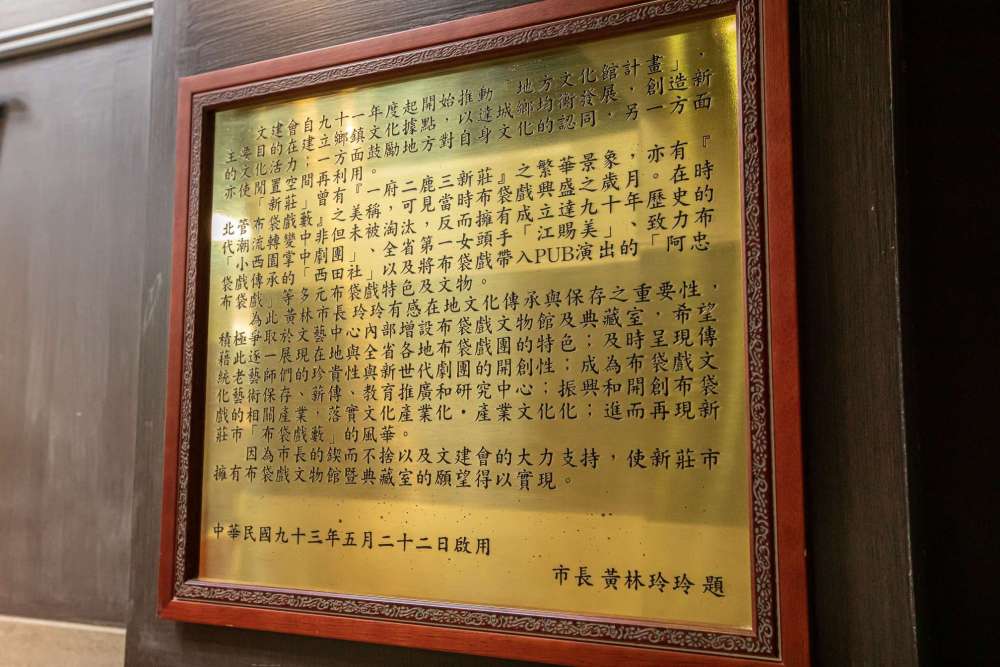 文建會自九十一年度起開始推動「地方文化館計畫」，
主要目的在建立鄉鎮文化據點，以達城鄉均衡發展，創造新
的文化活力；一方面鼓勵地方對自身文化的認同，另一方面
亦使閒置空間再利用。
「新莊」曾有『一府二鹿三新莊』之繁華景象，亦有『
北管布袋戲藪』之美稱，可見當時布袋戲興盛之歲月。在時
代潮流轉變中非但未被淘汰，反而擁有成立達九十年、歷史的
「小西園掌中劇團」、全省第一女頭手「江賜美」、致力布
袋戲傳承的「西田社」以及將布袋戲帶入PUB演出的「阿忠
布袋戲」等多元布袋戲特色及文物。
為此黃林市長玲玲有感在地文化傳承與保存之重要性，
積極爭取於藝文中心內部增設布袋戲文物館及典藏室，希望
藉此逐一展現在地與全省各地布袋戲團的特色；及時呈現傳
統老藝師們的珍貴性與新世代劇團的開創性；成為布袋戲文
化藝術保存、薪傳、教育推廣和研究中心；振興和開創布袋
戲的相關產業，落實文化產業化・產業文化化；進而再現新
莊市「布袋戲藪」的風華。
因為市長的鍥而不捨以及文建會的大力支持，使新莊市
擁有布袋戲文物館暨典藏室的願望得以實現。
中華民國九十三年五月二十二日啟用
市長 黃林玲玲 題